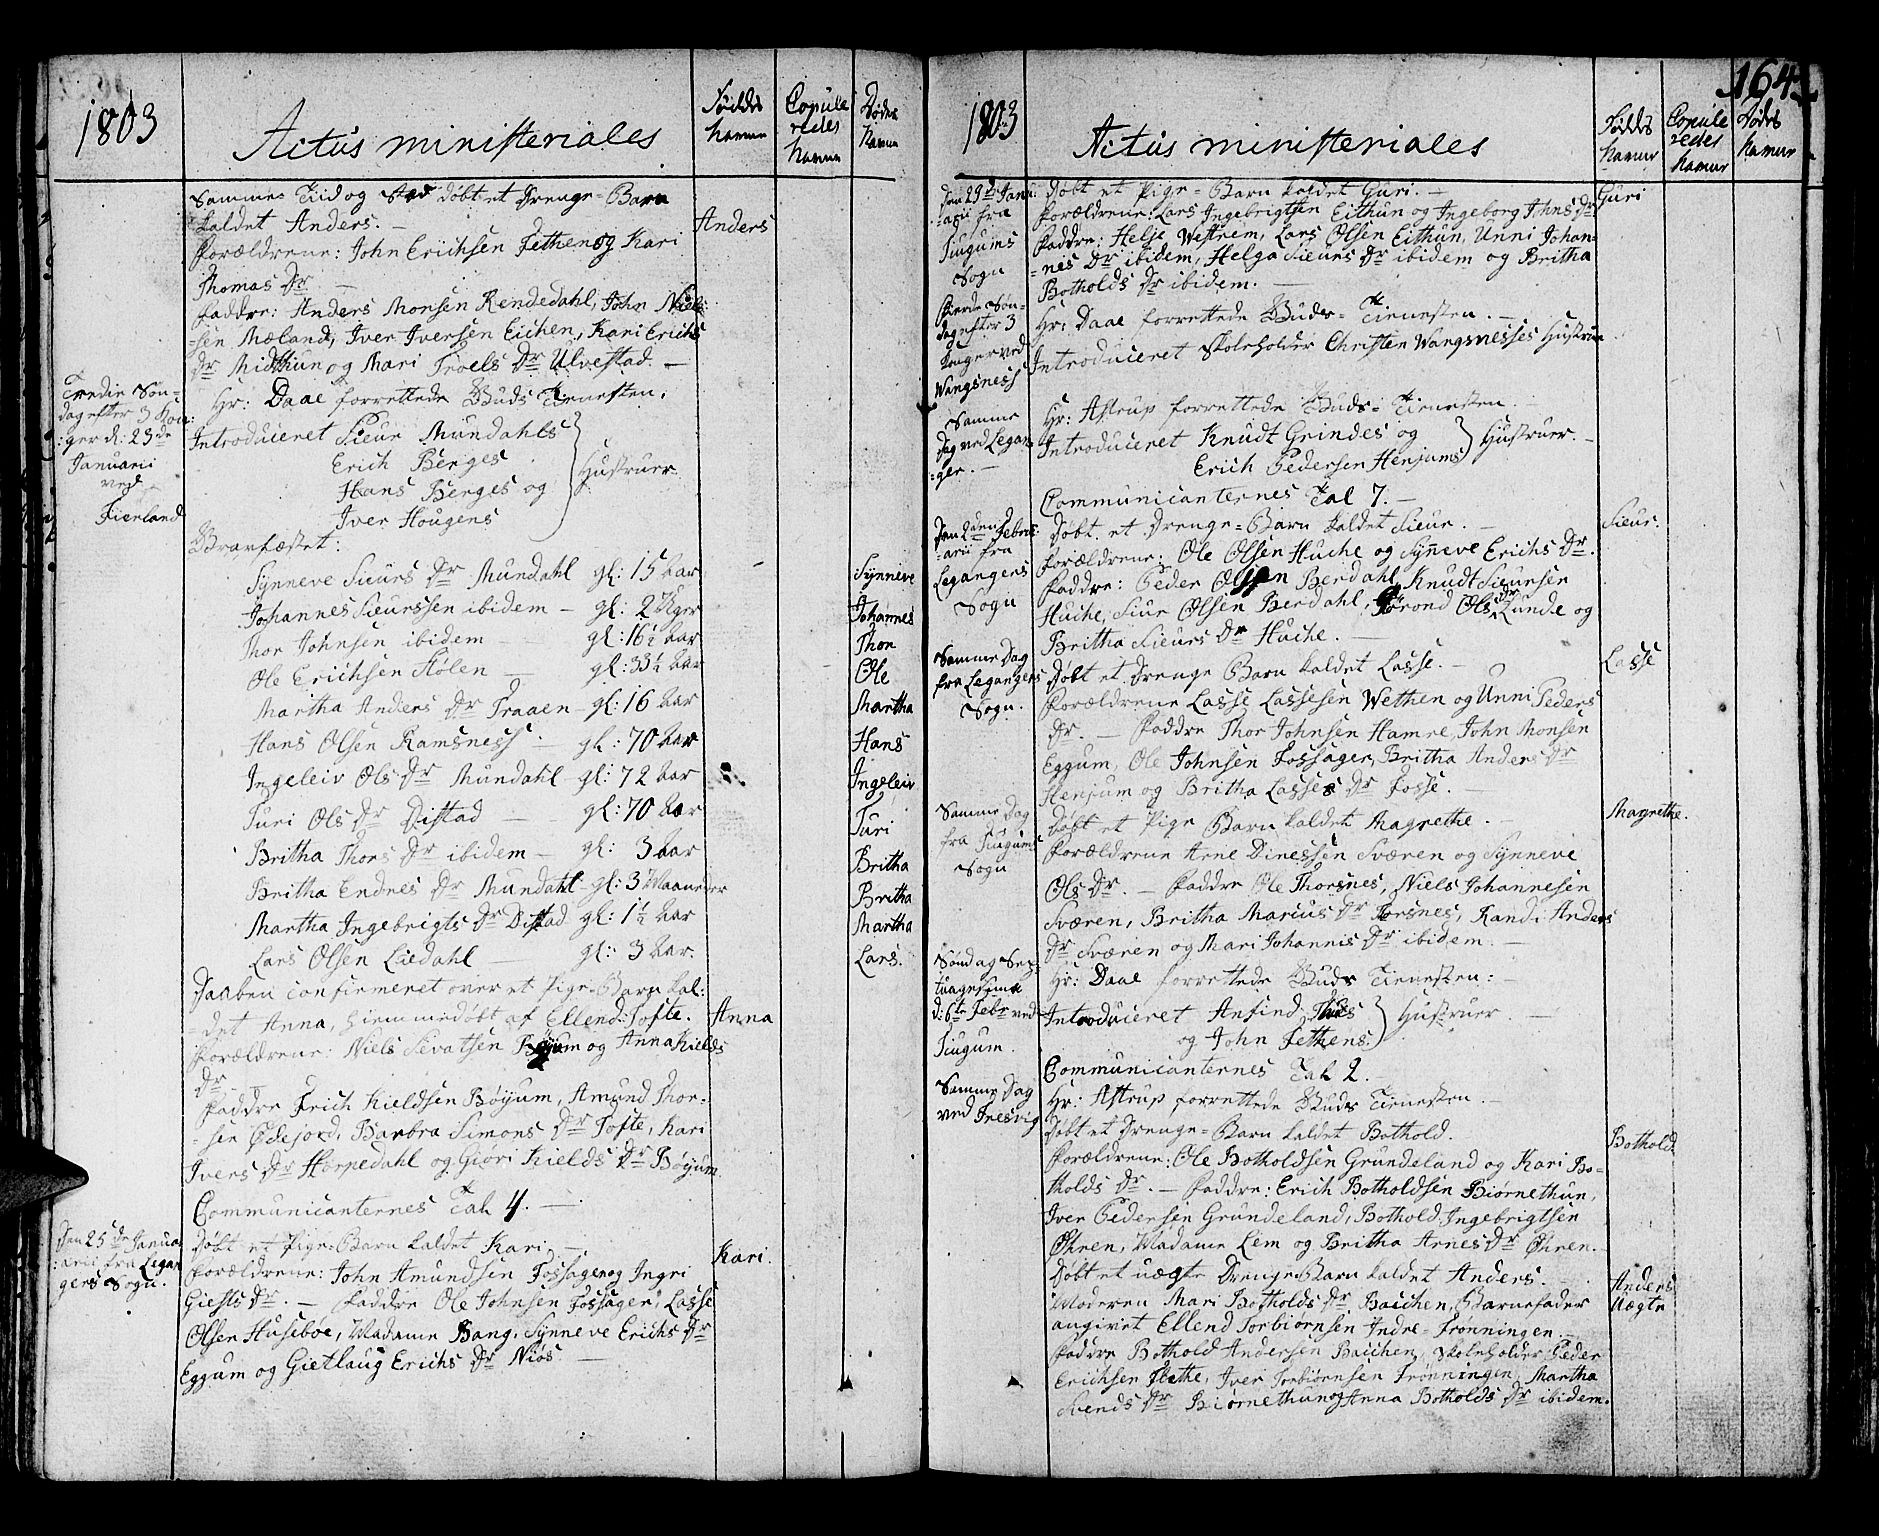 1803
Actus ministeriales
Fødde
Navne
Copule
redes
Navne
Dødes
Navne
Samme Tiid og Sted døbt et Drenge-Barn
kaldet Anders. —
Anders
Forældrene: John Erichsen Fethen og Kari
Thomas Dr. —
Faddre: Anders Monsen Rendedahl, John Niel-
-sen Mæland, Iver Iversen Eichen, Kari Erichs
Dr Midthun og Mari Troels Dr Ulvestad. —
Tredie Søn-
dag efter 3 Kon-
ger d: 23de
Januarii
ved
Fierland
Hr: Daae forrettede Guds Tienesten.
Introduceret Sieur Mundahls
Erich Berges
Hans Berges og
Iver Hougens
Hustruer
Gravfæstet:
Synneve Sieurs Dr Mundahl gl: 15 Aar
Synneve
Johannes Sieurssen ibidem — gl: 2 Uger
Johannes
Thor Johnsen ibidem — gl: 16½ Aar
Thor
Ole Erichsen Stølen — gl: 33½ Aar
Ole
Martha Anders Dr Traaen — gl: 16 Aar
Martha
Hans Olsen Ramsness — gl: 70 Aar
Hans
Ingeleiv Ols Dr Mundahl — gl: 72 Aar
Ingeleiv
Turi Ols Dr Distad — gl: 70 Aar
Turi
Britha Thors Dr ibidem — gl: 3 Aar
Britha
Britha Endres Dr Mundahl — gl: 3 Maaneder
Britha
Martha Ingebrigts Dr Distad gl: 1½ Aar
Martha
Lars Olsen Liedahl — gl: 3 Aar.
Lars.
Daaben confirmeret over et Pige-Barn kal-
-det Anna, hiemmedøbt af Ellend Tofte.
Anna
Forældrene: Niels Sivatsen Bøyum og Anna Kields
Dr —
Faddre Erich Kieldsen Bøyum, Amund Thor-
-sen Ødejord, Barbra Simons Dr Tofte, Kari
Ivers Dr Horpedahl og Giøri Kields Dr Bøyum
Communicanternes Tal 4. —
Den 25de Janu-
-arii fra Legan-
gers Sogn.
Døbt et Pige-Barn kaldet Kari. —
Kari.
Forældrene: John Amundsen Fossagen og Ingri
Giests Dr. — Faddre Ole Johnsen Fossager, Lasse
Olsen Husebøe, Madame Bang, Synneve Erichs Dr
Eggum og Gietlaug Erichs Dr Niøs. —
164
1803
Actus ministeriales
Fødde
Navne
Copule
redes
Navne
Dødes
Navne
Den 29de Janu-
-arii fra
Tiugums
Sogn
Døbt et Pige-Barn kaldet Guri. —
Guri
Forældrene: Lars Ingebrigtsen Eithun og Ingeborg Johns Dr
Faddre: Helje Westrem, Lars Olsen Eithun, Unni Johan-
-nes Dr ibidem, Helga Sieurs Dr ibidem og Britha
Botholds Dr ibidem. —
Fierde Søn-
dag efter 3
Konger ved
Wangsness
Hr: Daae forrettede Guds-Tienesten. —
Introduceret Skoleholder Christen Wangsnesses Hustrue
Samme
Dag ved Legan-
-ger. —
Hr: Astrup forrettede Guds-Tienesten. —
Introduceret Knudt Grindes og
Erich Pedersen Henjums
Hustruer. —
Communicanternes Tal 7. —
Den 2den Febru-
-arii fra
Legangers
Sogn
Døbt et Drenge-Barn kaldet Sieur. —
Sieur.
Forældrene: Ole Olsen Huche og Synneve Erichs Dr.
Faddre: Peder Olsen Berdahl, Knudt Sieursen
Huche, Siur Olsen Berdahl, Tørond Ols Dr Lunde og
Britha Sieurs Dr Huche. —
Samme Dag
fra Legangers
Sogn.
Døbt et Drenge Barn kaldet Lasse. —
Lasse
Forældrene Lasse Lassesen Wethen og Unni Peders
Dr. — Faddre Thor Johnsen Hamre, John Monsen
Eggum, Ole Johnsen Fossager, Britha Anders Dr
Henjum og Britha Lasses Dr Fosse. —
Samme Dag
fra Tiugums
Sogn
Døbt et Pige Barn kaldet Magrethe. —
Magrethe.
Forældrene Arne Dinessen Sværen og Synneve
Ols Dr. — Faddre Ole Thorsnes, Niels Johannesen
Sværen, Britha Marcus Dr Torsnes, Randi Anders
Dr Sværen og Mari Johannis Dr ibidem. —
Søndag Sep-
tuagesima
d: 6te Febr ved
Tiugum.
Hr: Daae forrettede Guds Tienesten: —
Introduceret Anfind
og John Fethens.
Hustruer. —
Communicanternes Tal 2. —
Samme Dag
ved Fresvig
Hr: Astrup forrettede Guds Tienesten. —
Døbt et Drenge-Barn kaldet Bothold.
Bothold
Forældrene: Ole Botholdsen Grundeland og Kari Bo-
tholds Dr. — Faddre: Erich Botholdsen Biørnethun,
Iver Pedersen Grundeland, Bothold Ingebrigtsen
Øhren, Madame Lem og Britha Arnes Dr Øhren. —
Døbt et uægte Drenge-Barn kaldet Anders. —
Anders
Uægte
Moderen Mari Botholds Dr Bacchen, Barnefader
angivet Ellend Torbiørnsen Indre-Frønningen. —
Faddre Bothold Andersen Bacchen, Skoleholder Peder
Erichsen Flethe, Iver Torbiørnsen Frønningen, Martha
Svends Dr Biørnethun og Anna Botholds Dr ibidem.